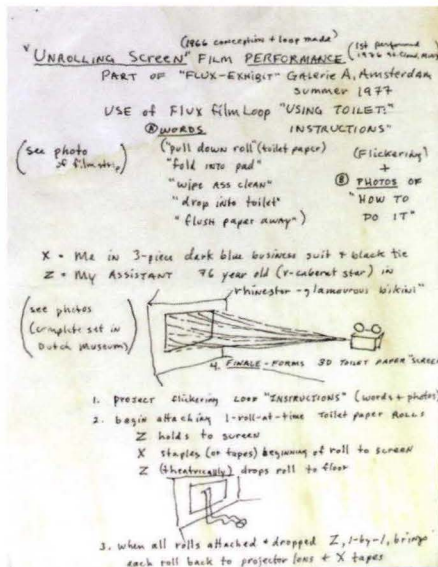 (1966 conception + loop made)
"UNROLLING SCREEN" FILM PERFORMANCE (1st performed
1976
PART OF "FLUX-EXHIBIT" Galerie A, Amsterdam
summer 1977
USE of FLUX film Loop "USING TOILET:"
Ⓐ WORDS INSTRUCTIONS"
(see photo
of filmstrip)
("pull down roll" (toilet paper)
"fold into pad"
"wipe ass clean"
"drop into toilet"
"flush paper away")
(Flickering)
+
Ⓑ PHOTOS OF
"HOW TO
DO IT"
X = Me in 3-piece dark blue business suit + black tie
Z = My ASSISTANT 76 year old (x-cabaret star) in
rhinestone-glamourous bikini"
(see photos
(complete set in
Dutch Museum)
4. FINALE - FORMS 3D TOILET PAPER "SCREEN
1. project flickering Loop "INSTRUCTIONS" (words + photos)
2. begin attaching 1-roll-at-time Toilet paper ROLLS
Z holds to screen
X staples (or tapes) beginning of roll to screen
Z (theatrically) drops roll to floor
3. when all rolls attached + dropped Z, 1-by-1, brings
each roll back to projector lens + X tapes